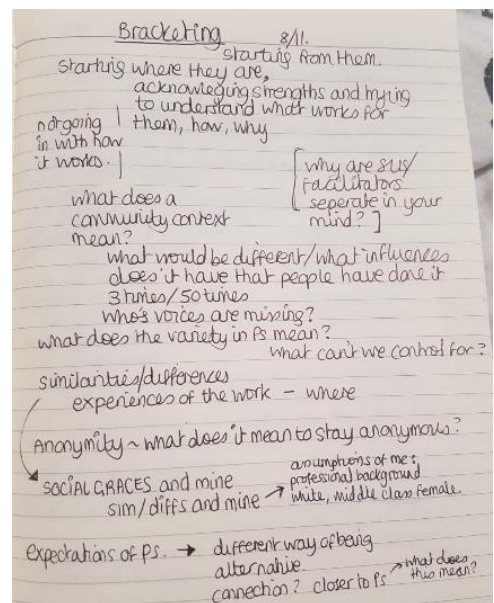 Bracketing 8/11.
starting from them.
Starting where they are,
acknowleging strengths and trying
to understand what works for
them, how, why
not going
in with how
it works.
[why are SUs/
facilitators
seperate in your
mind?]
what does a
community context
mean?
what would be different/what influences
does it have that people have done it
3 times/50 times
who's voices are missing?
what does the variety in Ps mean?
what can't we control for?
similarities/differences
experiences of the work - where
Anonymity ~ what does it mean to stay anonymous?
SOCIAL GRACES and mine
sim/diffs and mine →
assumptions of me:
professional background
white, middle class female.
expectations of Ps. → different way of being
alternative
connection? closer to Ps → what does
this mean?